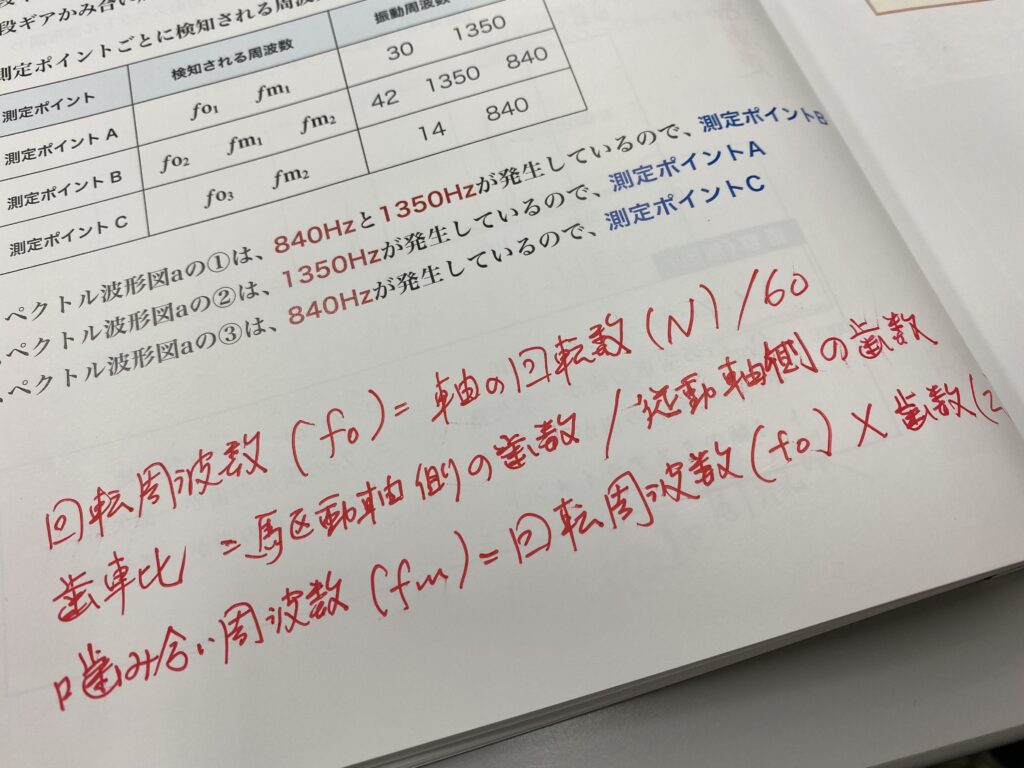 段ギアかみ合い
測定ポイントごとに検知される周波
測定ポイント 検知される周波数 振動周波数
測定ポイントA fo₁ fm₁ 30 1350
測定ポイントB fo₂ fm₁ fm₂ 42 1350 840
測定ポイントC fo₃ fm₂ 14 840
ペクトル波形図aの①は、840Hzと1350Hzが発生しているので、測定ポイントB
ペクトル波形図aの②は、1350Hzが発生しているので、測定ポイントA
ペクトル波形図aの③は、840Hzが発生しているので、測定ポイントC
回転周波数(fo)=軸の回転数(N)/60
歯車比=駆動軸側の歯数/従動軸側の歯数
噛み合い周波数(fm)=回転周波数(fo)×歯数(z